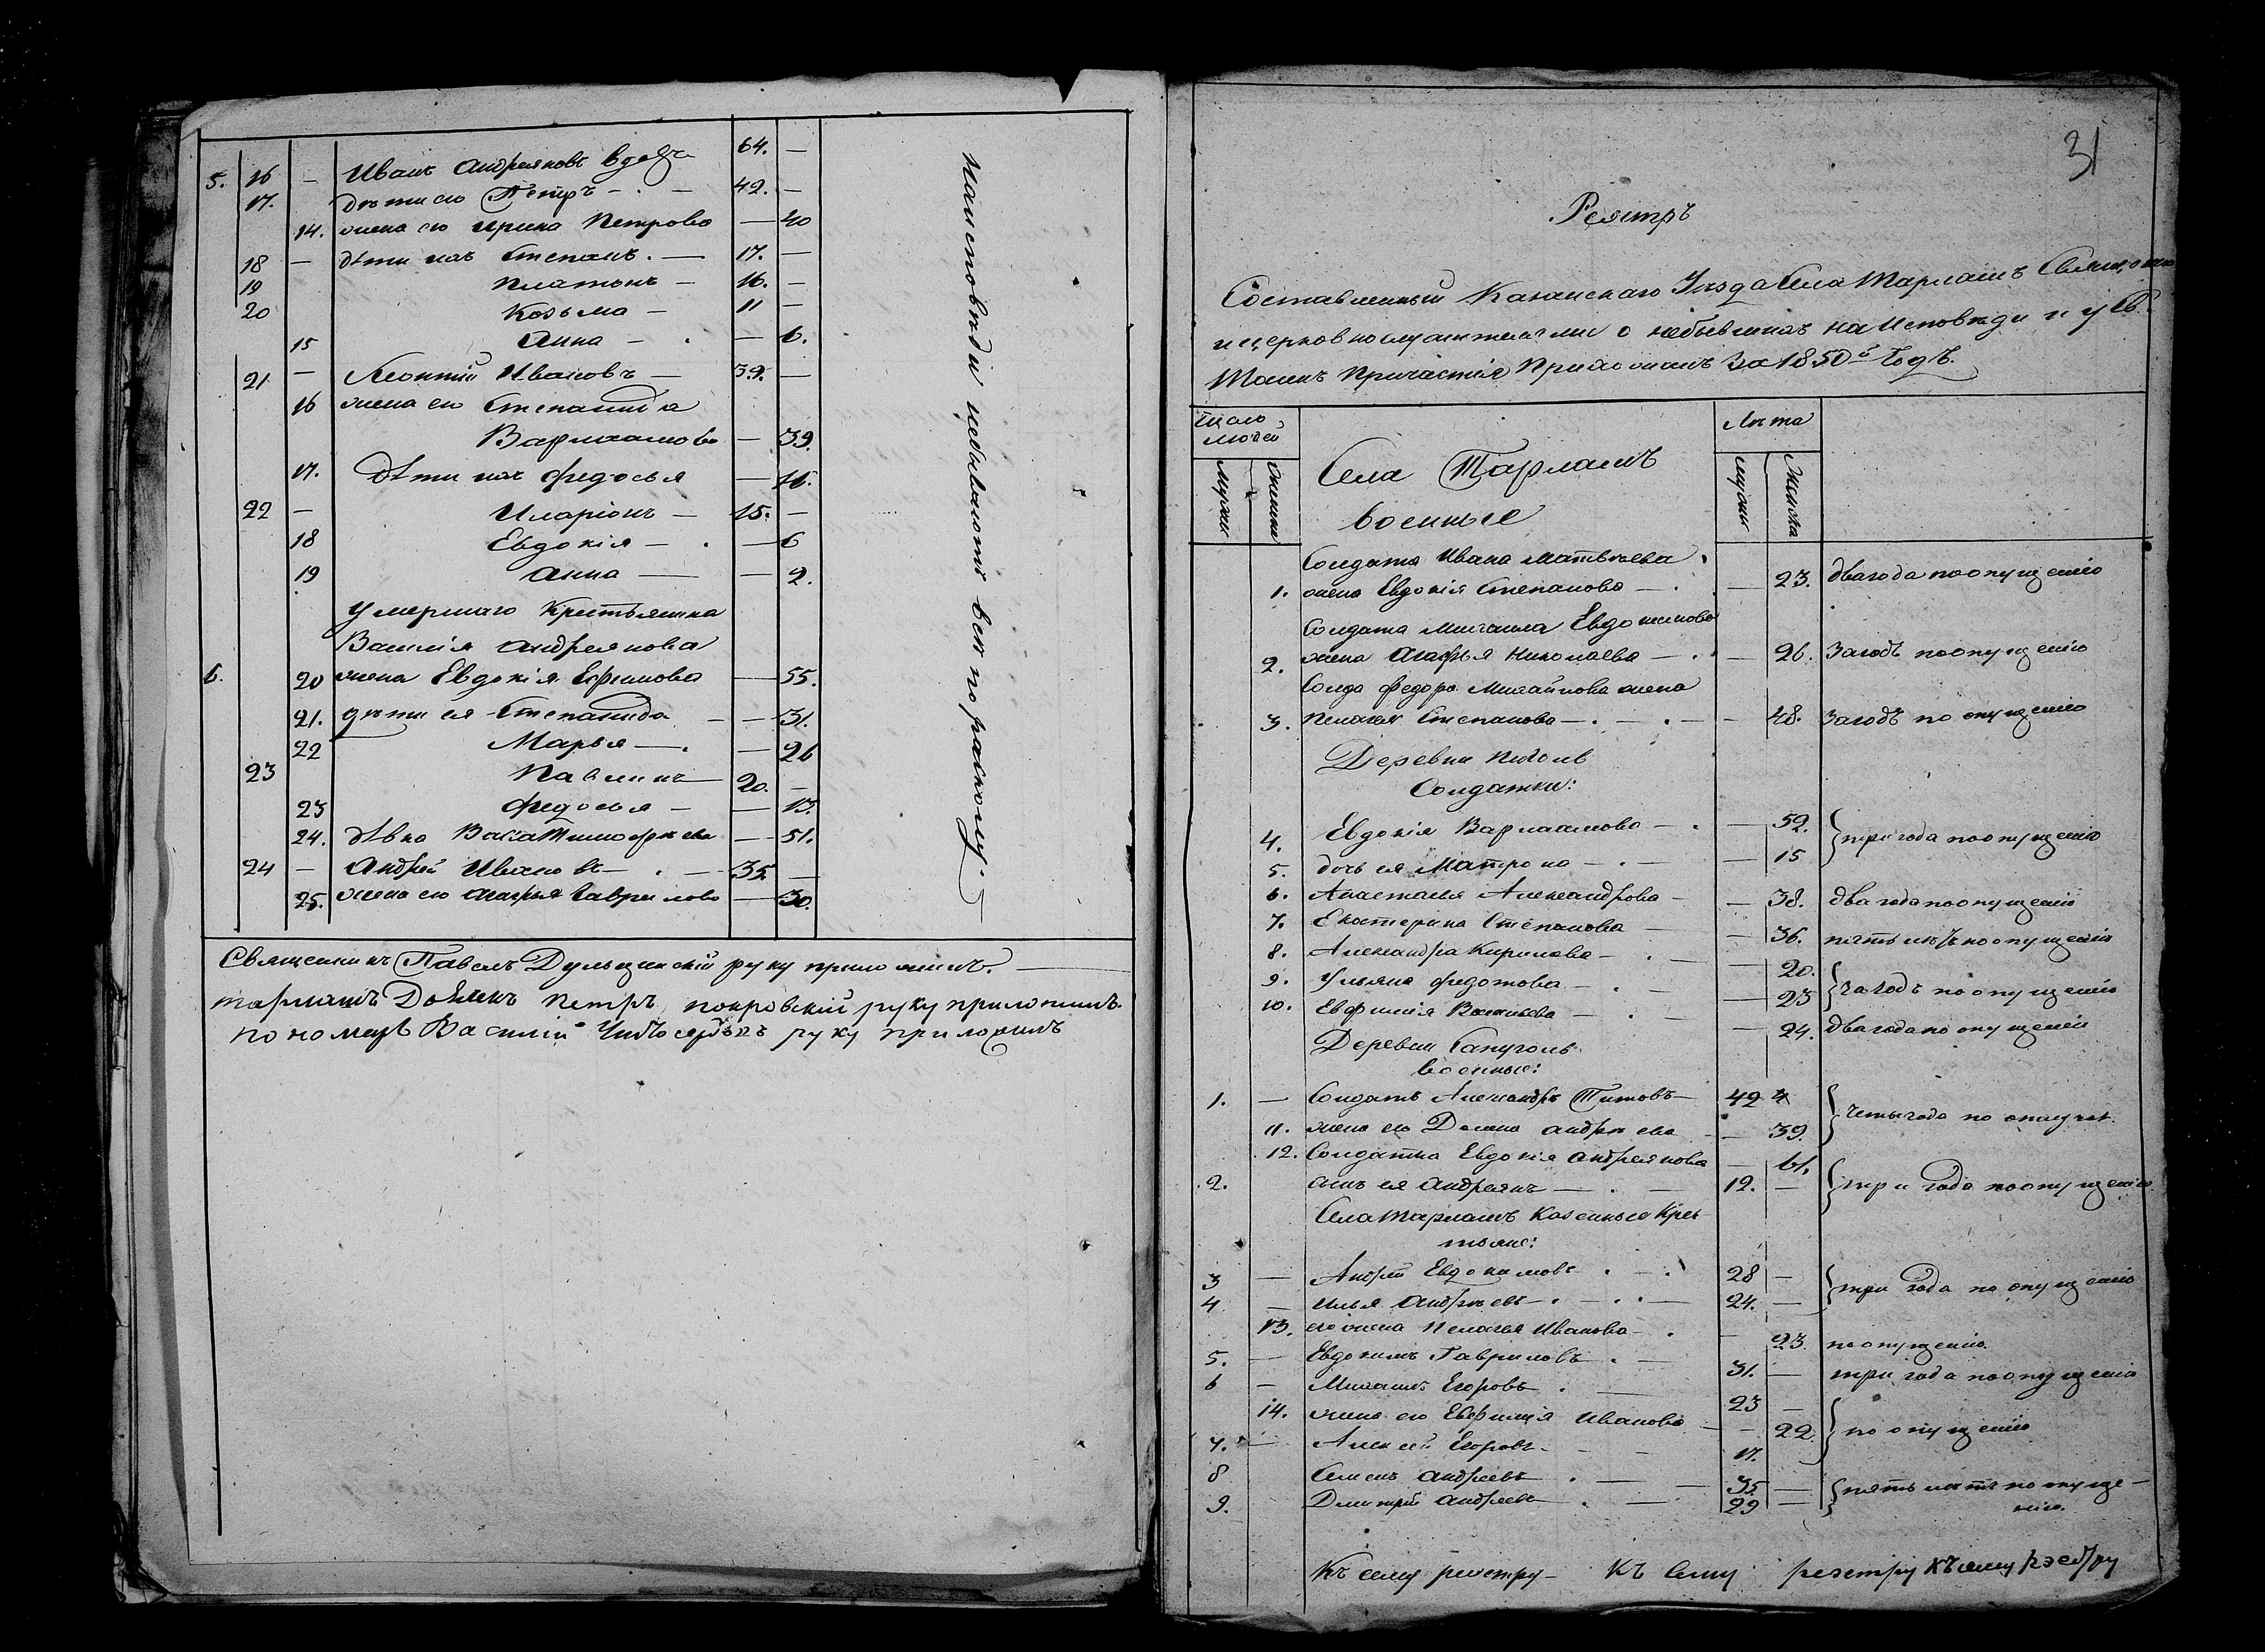 5. 16 — Иванъ Андреяновъ вдовъ 64. —
17. дѣти его Петръ — 42. —
14. жена его Ирина Петрова — 40
18 — дѣти ихъ Степанъ. — 17. —
19 Платонъ — 16. —
20 Козьма — 11 —
15 Анна — — 6.
21 — Леонтій Ивановъ — 39. —
16 жена его Степанида
Варлаамова — 39.
17. дѣти ихъ Федосья — 16.
22 — Иларіонъ — 15. —
18 Евдокія — — 6
19 Анна — — 2.
Умершаго Крестьянина
Василія Андреянова
6. 20 жена Евдокія Ефимова — 55.
21. дѣти ея Степанида — — 31.
22 Марья — — 26
23 Павлинъ — 20. —
23 Федосья — — 13.
24. дѣвка Васса Тимофѣева — 51.
24 — Андрей Ивановъ — 35 —
25. жена его Агафья Гаврилова — 30.
на исповѣди небываютъ всѣ по расколу.
Священникъ Павелъ руку приложилъ.
тарлашъ Дьячекъ Петръ покровскій руку приложилъ.
пономарь Василій руку приложилъ
31
Реэстръ
Составленный Казанскаго Уѣзда Села Тарлашъ Священно
и церковнослужителями о небывшихъ на Исповѣди и у Св.
Таинъ Причастія Прихожанъ За 1850й Годъ.
Число людей
Лѣта
Мужск
Женска
Села Тарлашъ
военные
мужск
Женска
Солдата Ивана Матвѣева
1. жена Евдокія Степанова — — 23. два года по опущенію
Солдата Михаила Евдокимова
2. жена Агафья Николаева — — 26. За годъ по опущенію
Солда Федора Михайлова жена
3. Пелагея Степанова — — 48. За годъ по опущенію
Деревни
Солдатки:
4. Евдокія Варлаамова — — 52. } три года по опущенію
5. дочь ея Матрона — — 15
6. Анастасья Александрова — — 38. два года по опущенію
7. Екатерина Степанова — 36. пять лѣтъ по опущенію
8. Александра Кирилова — — 20. } За годъ по опущенію
9. Ульяна Федотова — — 23
10. Евфимія Васильева — — 24. два года по опущенію
Деревни
военные:
1. — Солдатъ Александръ Титовъ — 42
11. жена его Домна Андрѣева — 39.
12. Солдатка Евдокія Андреянова — 61. } три года по опущенію
2. сынъ ея Андреянъ — 12. —
Села Тарлашъ Казенные Крес
тьяне:
3 — Андрей Евдокимовъ 28 — } три года по опущенію
4 — Илья Андрѣевъ — 24. —
13. его жена Пелагья Иванова — — 23. по опущенію
5. — Евдокимъ Гавриловъ — 31. — три года по опущенію
6 — Михаилъ Егоровъ — 23 — } по опущенію
14. жена его Евфимія Иванова — 22
7. — Алексѣй Егоровъ — 17.
8 Семенъ Андреевъ — 35 — } пять лѣтъ по опуще-
9. Дмитрій Андреевъ — 29 — нію.
Къ сему реэстру — Къ Сему реэстру къ сему рэестру